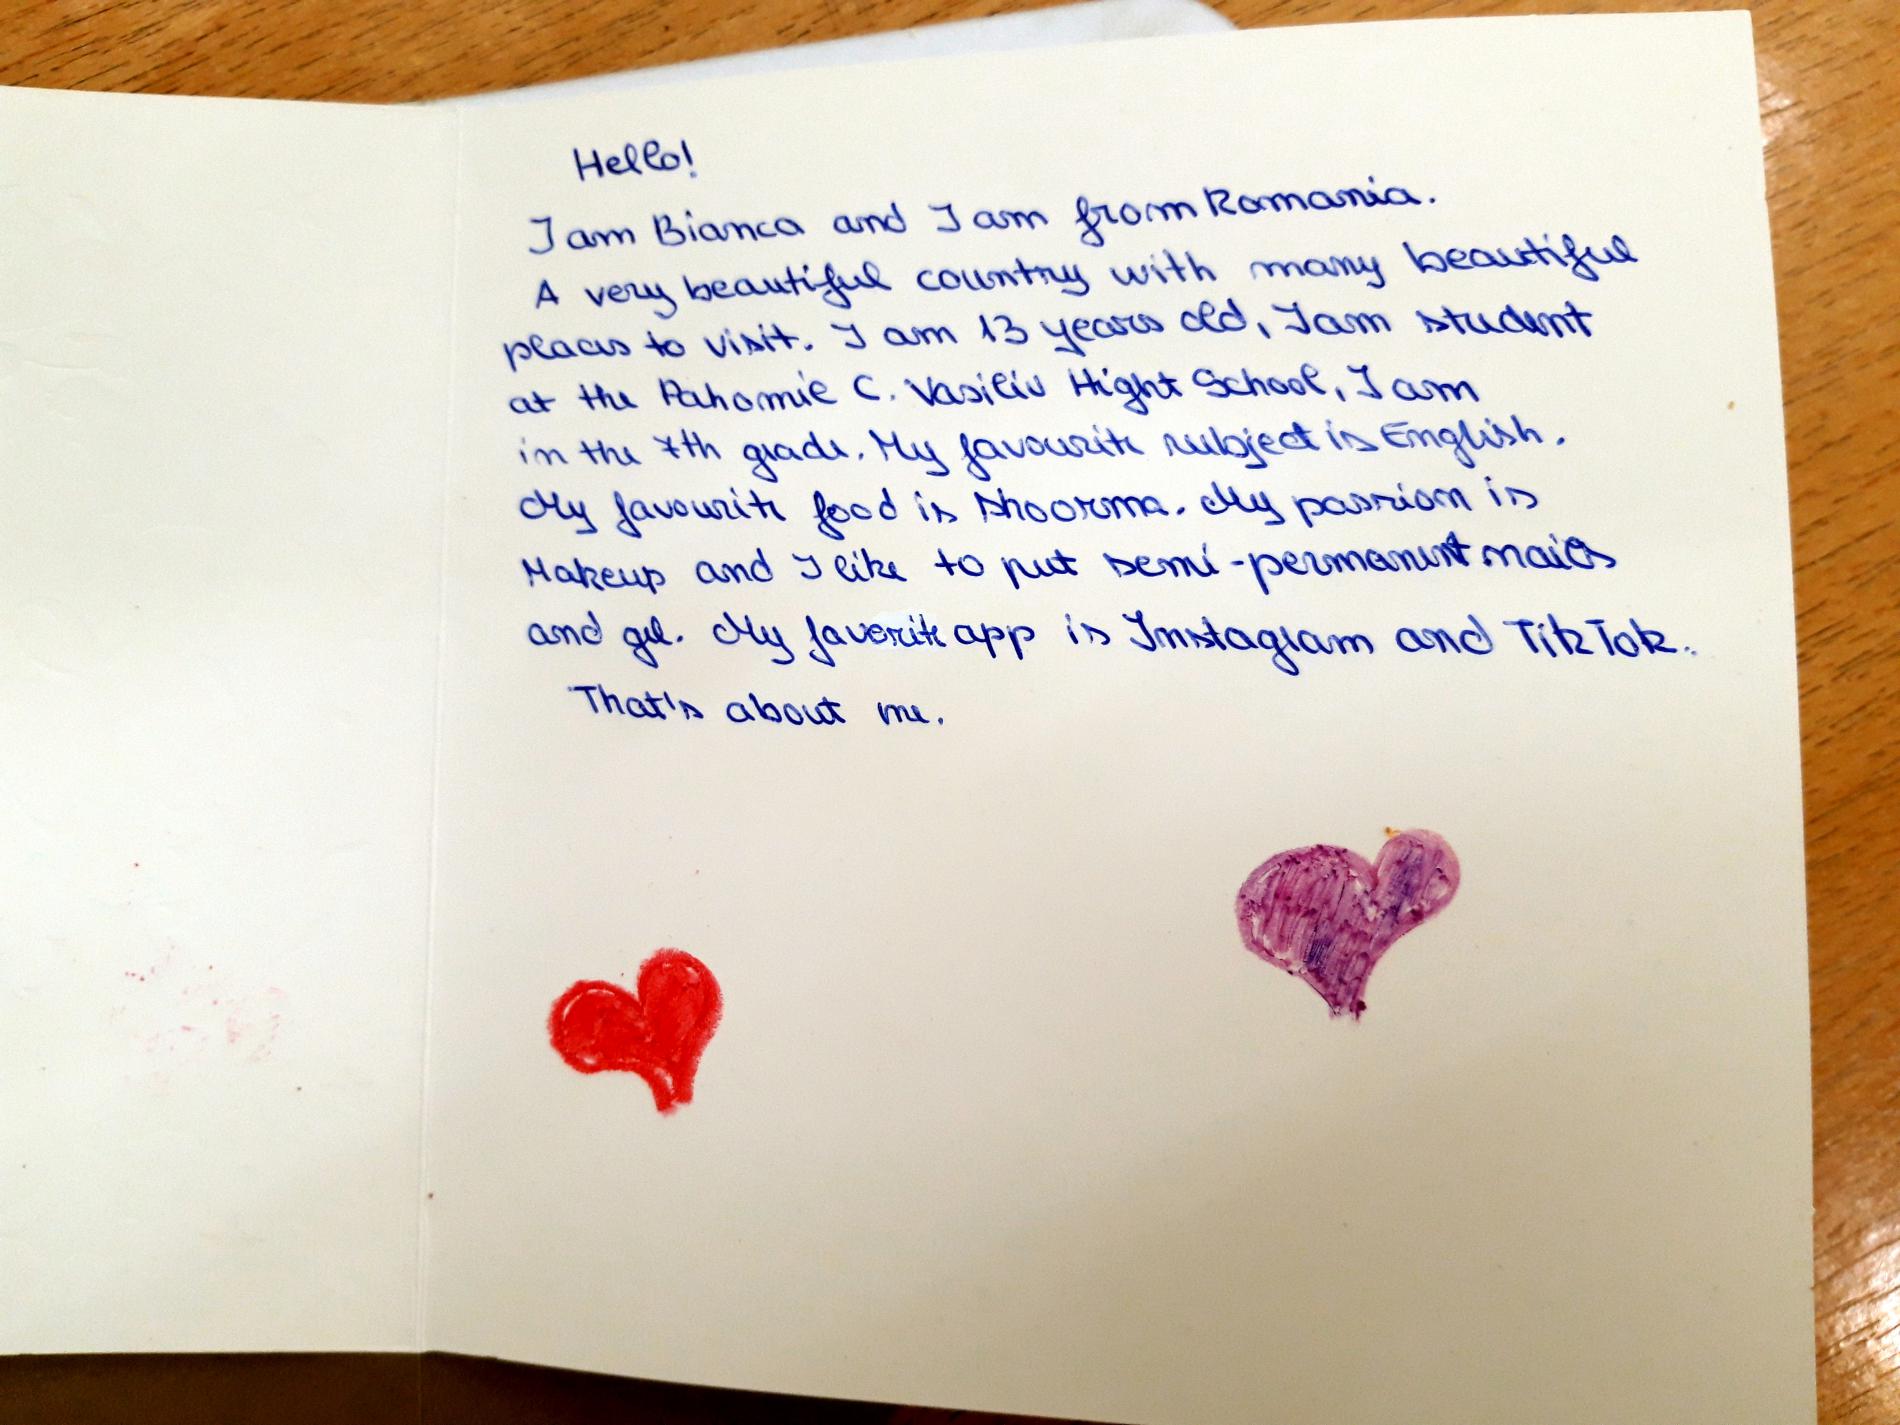 Hello!
I am Bianca and I am from Romania.
A very beautiful country with many beautiful
places to visit. I am 13 years old, I am student
at the Pahomie C. Vasiliv Hight School, I am
in the 7th grade. My favourite subject is English.
My favourite food is shoorma. My passion is
Makeup and I like to put semi-permanent nails
and gel. My favorite app is Instagram and TikTok.
That's about me.